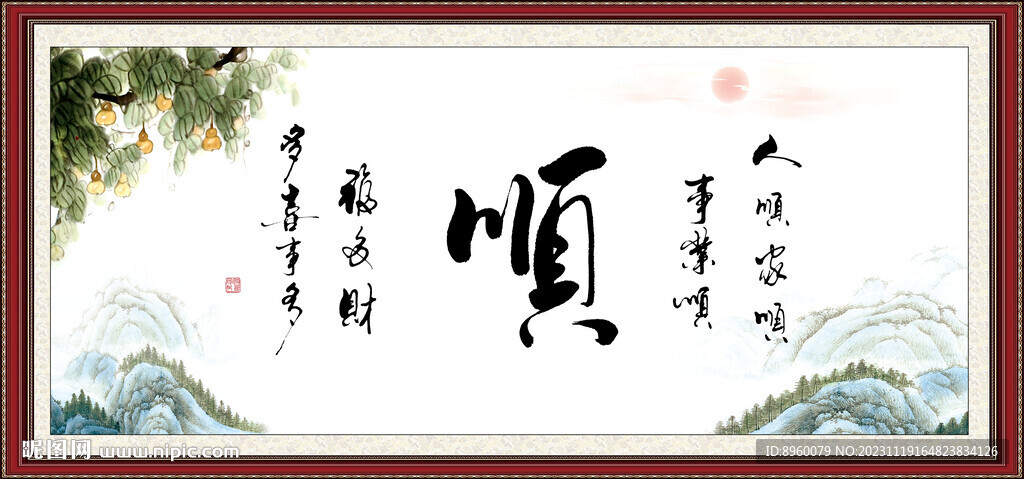 人順家順
事業順
順
福多財
多喜事多
昵图网 www.nipic.com
ID:8960079 NO:20231119164823834126